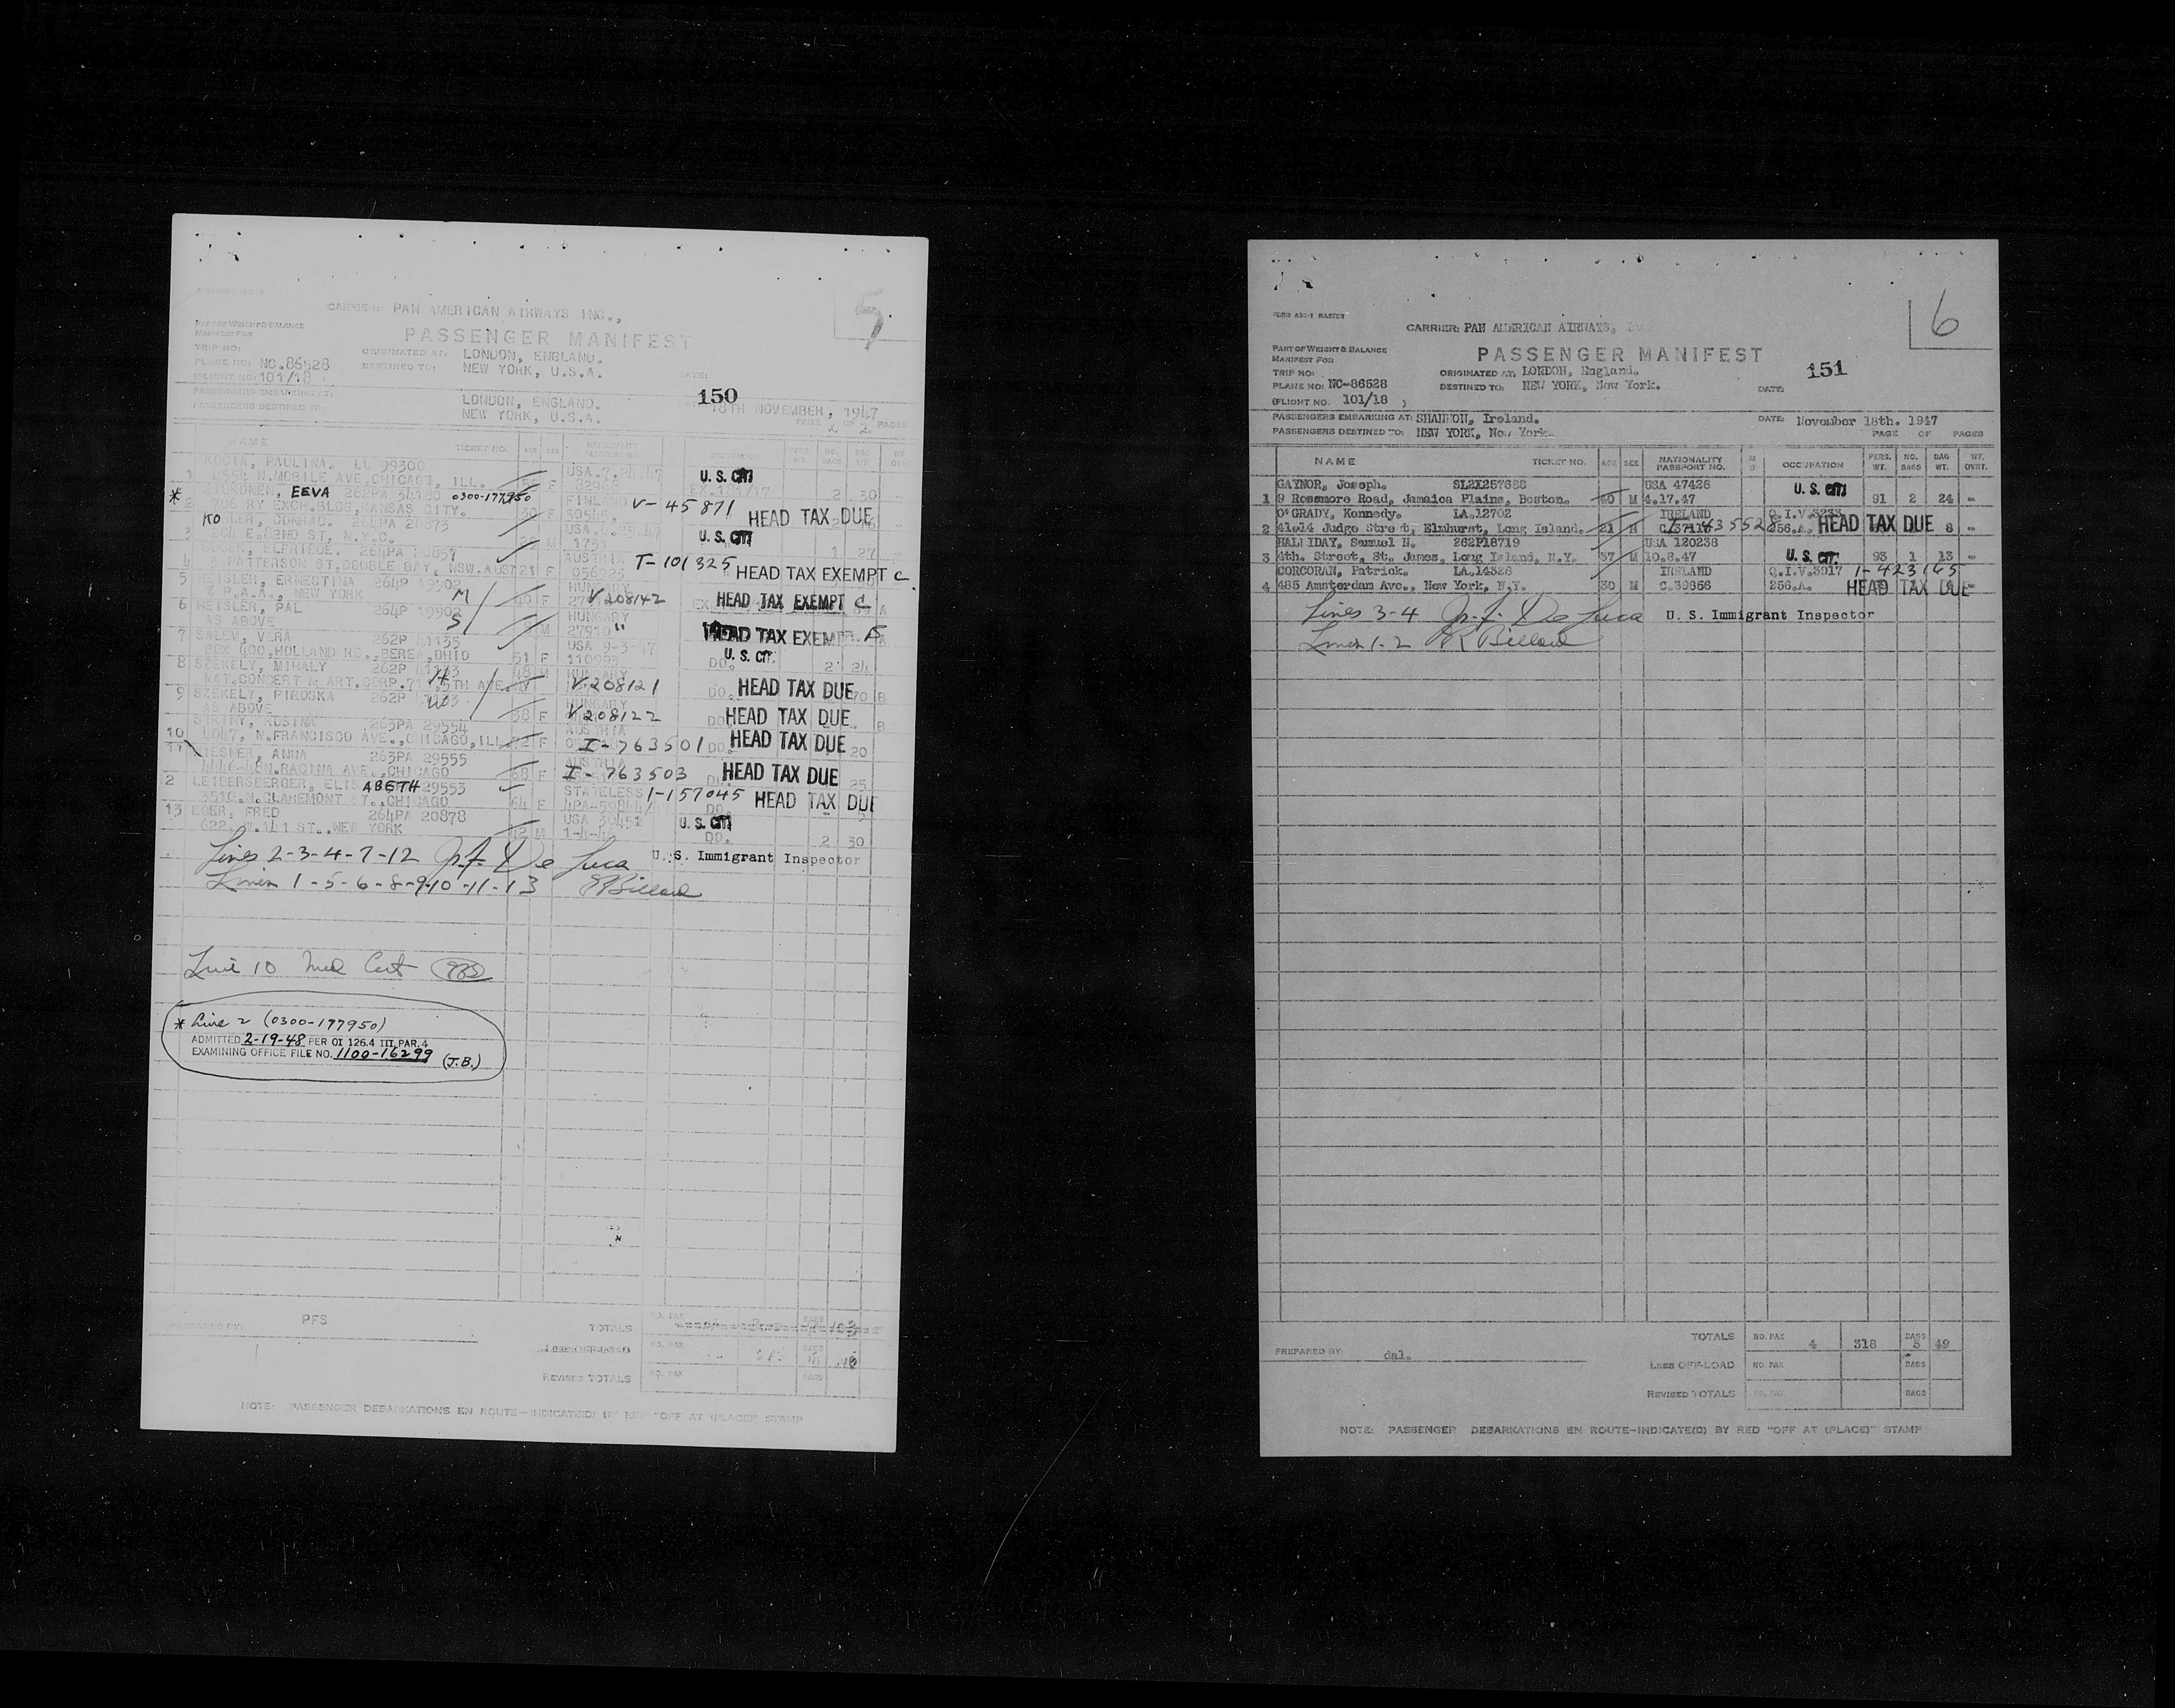 5
CARRIER: PAN AMERICAN AIRWAYS INC.,
PART OF WEIGHT & BALANCE
MANIFEST FOR
PASSENGER MANIFEST
TRIP NO:
ORIGINATED AT: LONDON, ENGLAND.
PLANE NO: NC.86528
DESTINED TO: NEW YORK, U.S.A.
DATE:
(FLIGHT NO: 101/18 )
150
PASSENGERS EMBARKING AT: LONDON, ENGLAND.
18TH NOVEMBER, 1947
PASSENGERS DESTINED TO: NEW YORK, U.S.A.
PAGE 2 OF 2 PAGES
NAME TICKET NO. AGE SEX NATIONALITY PASSPORT NO. OCCUPATION PERS. WT. NO. BAGS BAG WT. WT. OVRT.
PAULINA. LL 99300 USA.7.24.47
1 4554 N.MOBILE AVE,CHICAGO, ILL. F U. S. CIT. 2 30
* EEVA 262PA 0300-177950 FINLAND V-45871
2 RY EXCH.BLDG,KANSAS CITY. 30 F HEAD TAX DUE
KO CONRAD. 264PA 20873 USA.
3 E.62ND ST, N.Y.C. M U. S. CIT. 1 27
ELFRIEDE. 264PA 20857 AUSTRIA T-101325
4 PATTERSON ST,DOUBLE BAY, NSW.AUST 21 F HEAD TAX EXEMPT C
5 ERNESTINA 264P 19902 M HUNGARY
P.A.A., NEW YORK 40 F V 208142 HEAD TAX EXEMPT C
6 PAL 264P 19902 S HUNGARY
AS ABOVE M 27910 " HEAD TAX EXEMPT
7 SALEM, VERA 262P 41135 USA 9-3-47
BOX 400,HOLLAND RD.,BEREA,OHIO 51 F 110993 U. S. CIT. DO. 2 24
8 SZEKELY, MIHALY 262P H HUNGARY
NAT.CONCERT & ART.CORP. 5TH AVE. V-208121 DO. HEAD TAX DUE 70 B
9 SZEKELY, PIROSKA 262P HUNGARY
AS ABOVE 38 F V 208122 DO. HEAD TAX DUE B
263PA 29554 AUSTRIA
10 4047, N.FRANCISCO AVE.,CHICAGO,ILL. 72 F I-763501 DO. HEAD TAX DUE 20
11 ANNA 263PA 29555 AUSTRIA
4446-48N.RACINA AVE.,CHICAGO 68 F I-763503 HEAD TAX DUE 25
2 LEIBERSBERGER, ELISABETH 29553 STATELESS 1-157045
3510.N.CLAREMONT ST.,CHICAGO 64 F DO. HEAD TAX DUE
13 EGER, FRED 264PA 20878 USA
622, W.141 ST.,NEW YORK M U. S. CIT. DO. 2 30
Lines 2-3-4-7-12 De Luca U. S. Immigrant Inspector
Lines 1-5-6-8-9-10-11-13 Billard
Line 10 Med Cert
* Line 2 (0300-177950)
ADMITTED 2-19-48 PER OI 126.4 III, PAR. 4
EXAMINING OFFICE FILE NO. 1100-16299 (J.B.)
PREPARED BY: PFS
TOTALS NO. PAX BAGS
LESS OFF-LOAD NO. PAX
REVISED TOTALS NO. PAX BAGS
NOTE: PASSENGER DEBARKATIONS EN ROUTE-INDICATE(D) BY RED "OFF AT (PLACE)" STAMP
6
FORM ASC-1 MASTER
CARRIER: PAN AMERICAN AIRWAYS,
PART OF WEIGHT & BALANCE
MANIFEST FOR
PASSENGER MANIFEST
TRIP NO:
ORIGINATED AT: LONDON, England.
151
PLANE NO: NC-86528
DESTINED TO: NEW YORK, New York.
DATE:
(FLIGHT NO. 101/18 )
PASSENGERS EMBARKING AT: SHANNON, Ireland.
DATE: November 18th. 1947
PASSENGERS DESTINED TO: NEW YORK, New York.
PAGE OF PAGES
NAME TICKET NO. AGE SEX NATIONALITY PASSPORT NO. OCCUPATION PERS. WT. NO. BAGS BAG WT. WT. OVRT.
GAYNOR, Joseph. SL2X257688 USA 47426
1 9 Rossmore Road, Jamaica Plains, Boston. 40 M 4.17.47 U. S. CIT. 91 2 24 -
O'GRADY, Kennedy. LA.12702 IRELAND Q.I.V.3233
2 41-14 Judge Street, Elmhurst, Long Island. 21 M 435528 256.A. HEAD TAX DUE 8 -
HALLIDAY, Samuel N. 262P18719 USA 120236
3 4th. Street, St. James, Long Island, N.Y. 37 M 10.8.47 U. S. CIT. 93 1 13 -
CORCORAN, Patrick. LA.14328 IRELAND Q.I.V.3017 1-423165
4 485 Amsterdam Ave., New York, N.Y. 30 M C.39856 256.A. HEAD TAX DUE
Lines 3-4 De Luca U. S. Immigrant Inspector
Lines 1-2 Billard
PREPARED BY: dal.
TOTALS NO. PAX 4 318 BAGS 5 49
LESS OFF-LOAD NO. PAX BAGS
REVISED TOTALS NO. PAX BAGS
NOTE: PASSENGER DEBARKATIONS EN ROUTE-INDICATE(D) BY RED "OFF AT (PLACE)" STAMP